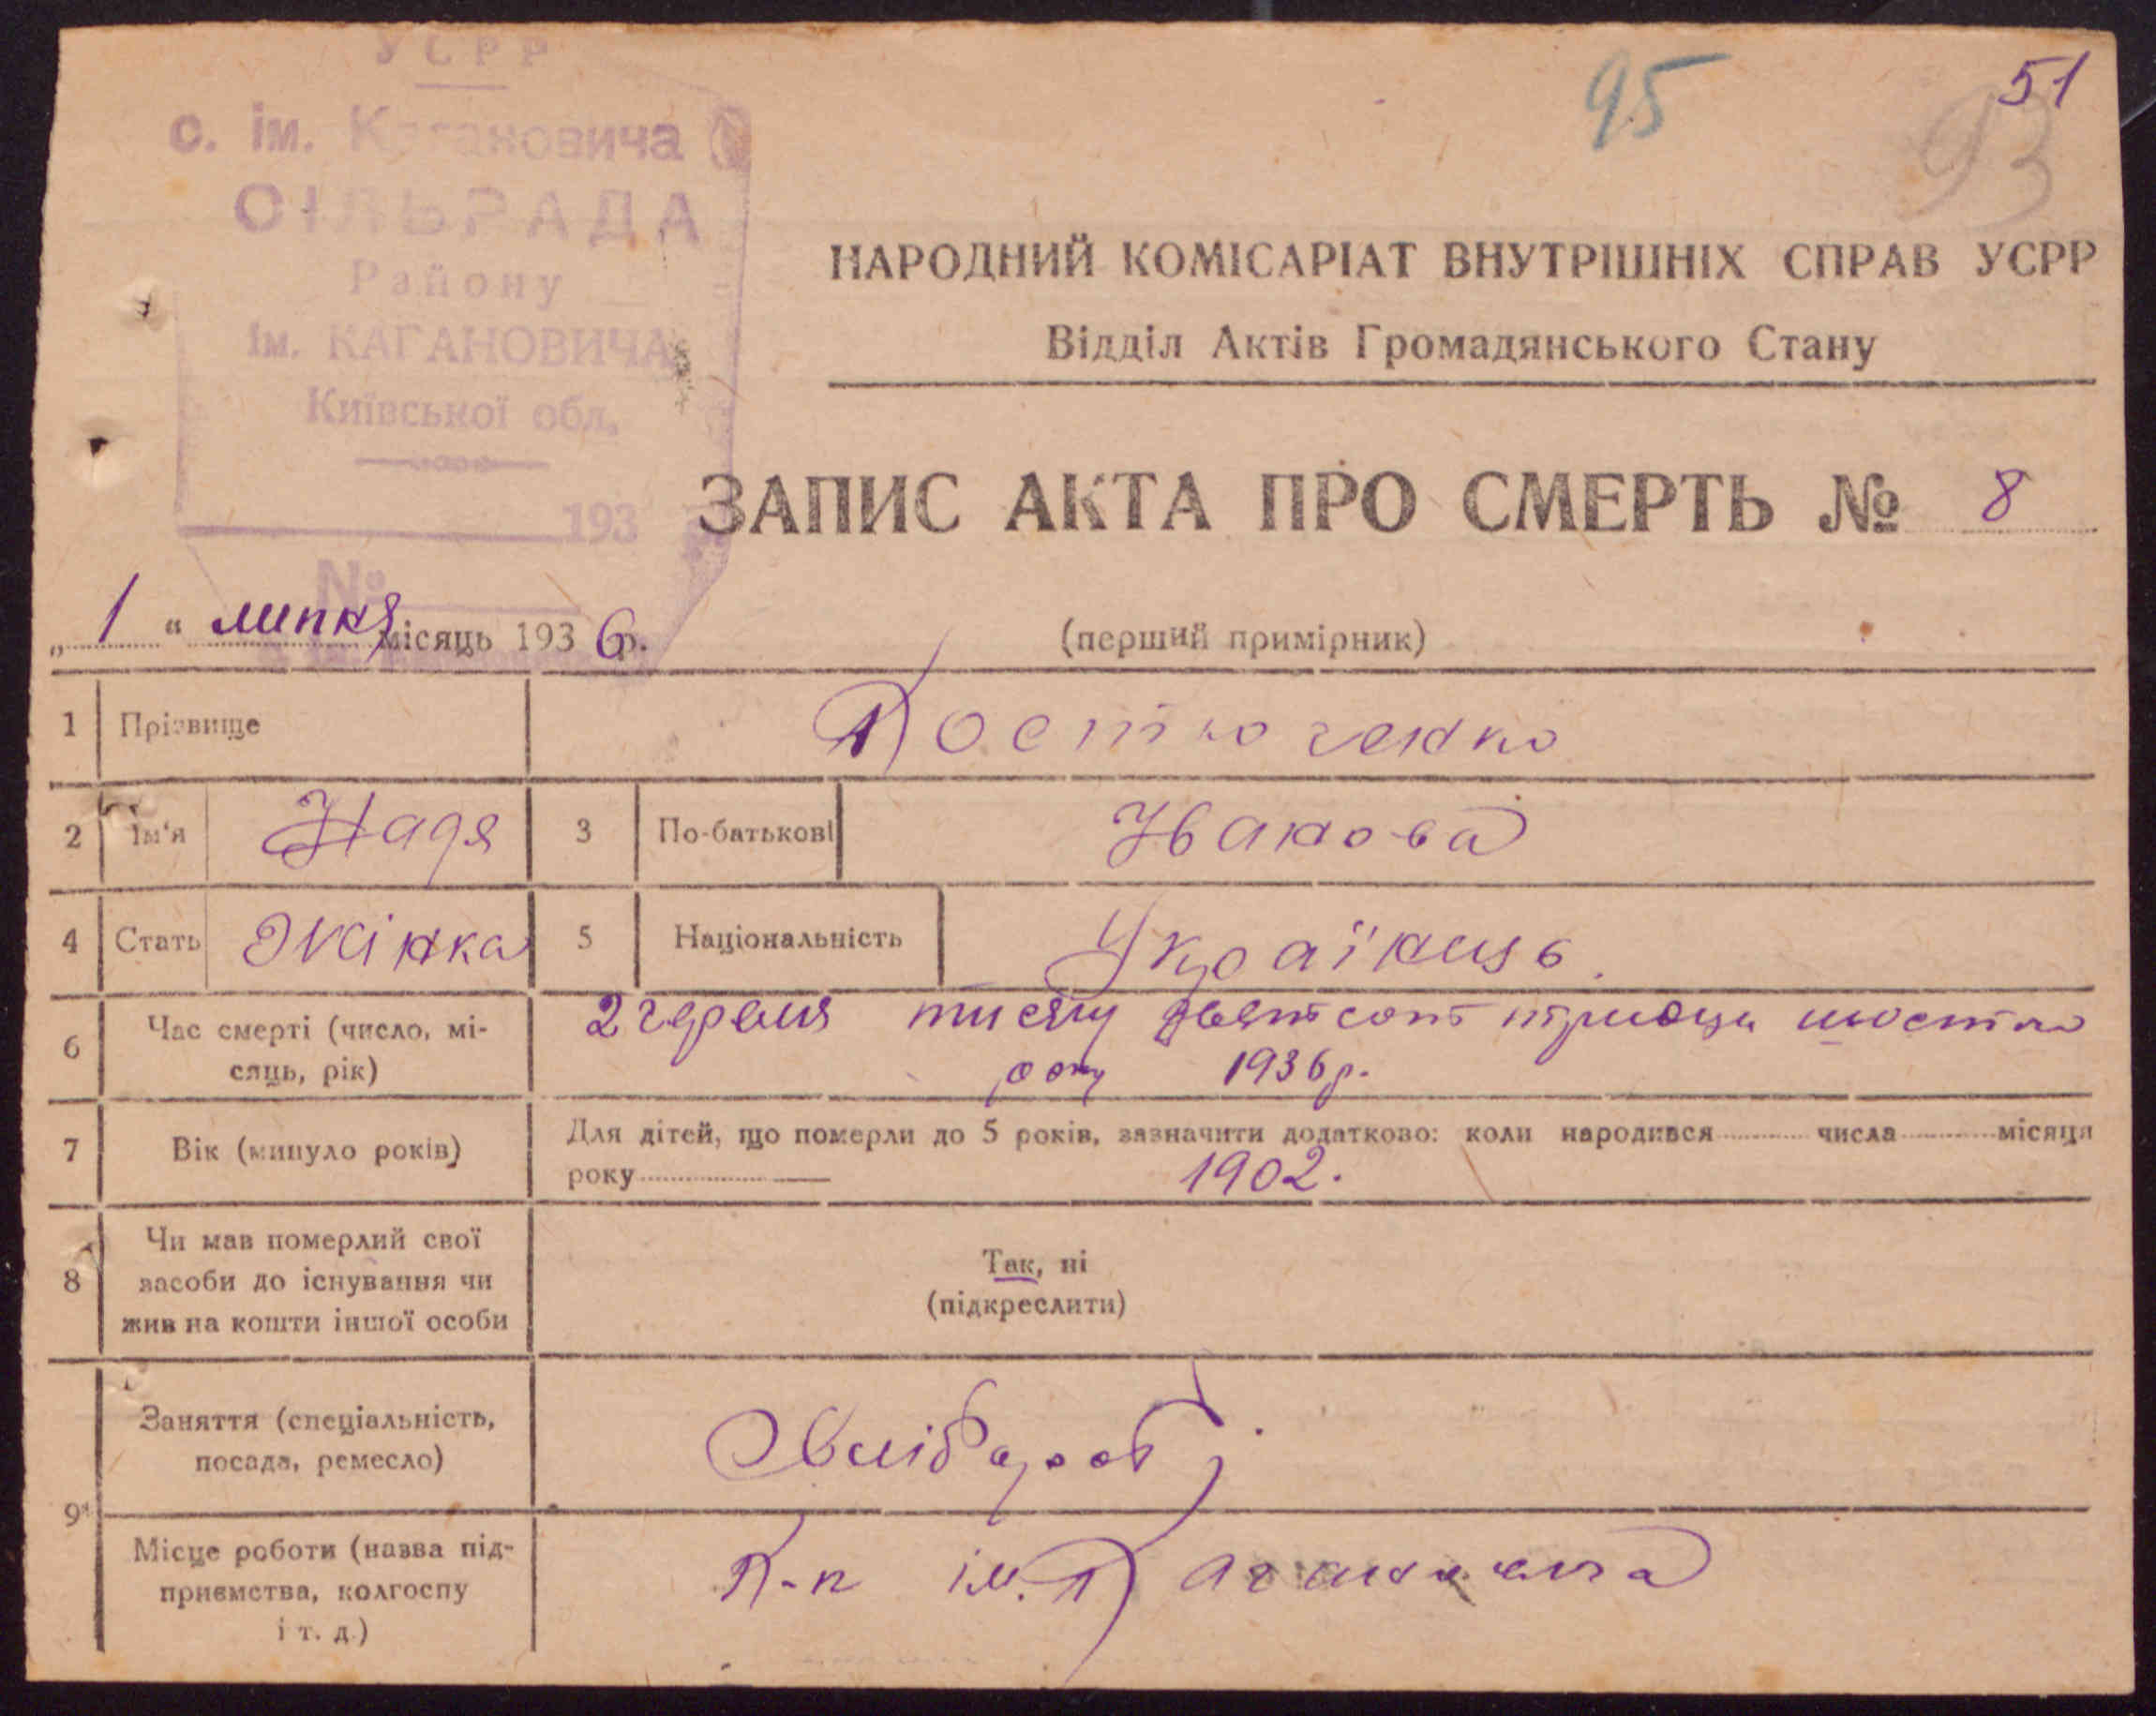 УСРР
с. ім. Кагановича
СІЛЬРАДА
Району
ім. КАГАНОВИЧА
Київської обл.
193
№
95
51
93
НАРОДНИЙ КОМІСАРІАТ ВНУТРІШНІХ СПРАВ УСРР
Відділ Актів Громадянського Стану
ЗАПИС АКТА ПРО СМЕРТЬ № 8
„ 1 “ липня місяць 1936 р.
(перший примірник)
1 Прізвище Костюченко
2 Ім'я Надя 3 По-батькові Іванова
4 Стать Жінка 5 Національність Українць
6 Час смерті (число, мі-
сяць, рік)
2 червня тисяч девятсот тридцять шостого
року 1936 р.
7 Вік (минуло років)
Для дітей, що померли до 5 років, зазначити додатково: коли народився числа місяця
року 1902.
8 Чи мав померлий свої
засоби до існування чи
жив на кошти іншої особи
Так, ні
(підкреслити)
9 Заняття (спеціальність,
посада, ремесло)
Хлібороб
Місце роботи (назва під-
приємства, колгоспу
і т. д.)
К-п ім. Кагановича